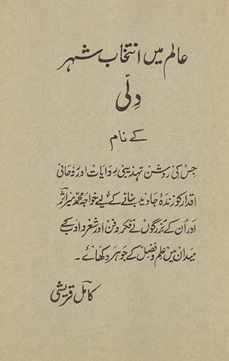 عالم میں انتخاب شہر
دِلّی
کے نام
جس کی روشن تہذیبی روایات اور روحانی
اقدار کو زندہ جاوید بنانے کے لیے خواجہ محمد میر اثر
اور ان کے بزرگوں نے فکر و فن اور شعر و ادب کے
میدان میں علم و فضل کے جوہر دکھائے۔
کامل قریشی